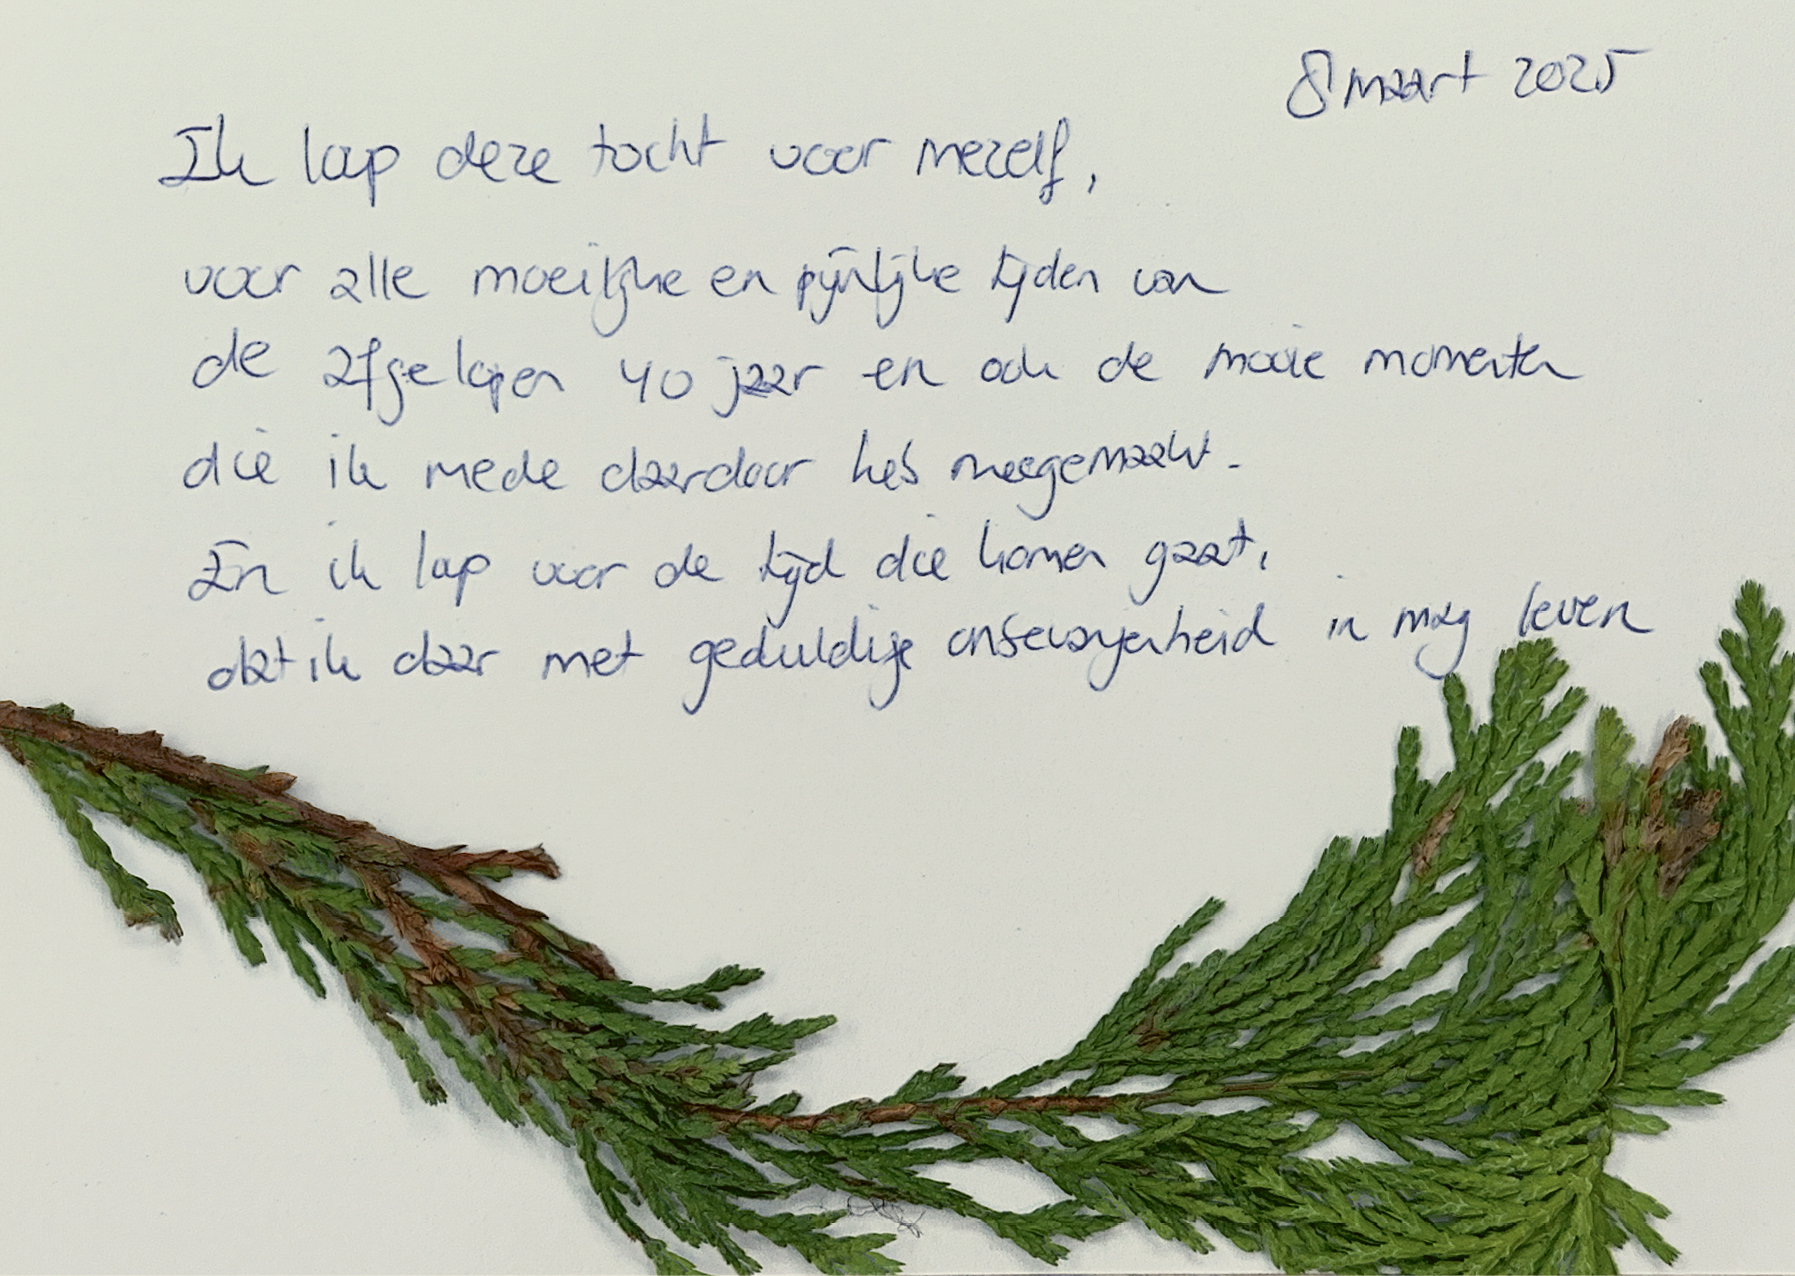 8 maart 2025
Ik loop deze tocht voor mezelf,
voor alle moeilijke en pijnlijke tijden van
de afgelopen 40 jaar en ook de mooie momenten
die ik mede daardoor heb meegemaakt.
En ik loop voor de tijd die komen gaat,
dat ik daar met geduldige onbevangenheid in mag leven